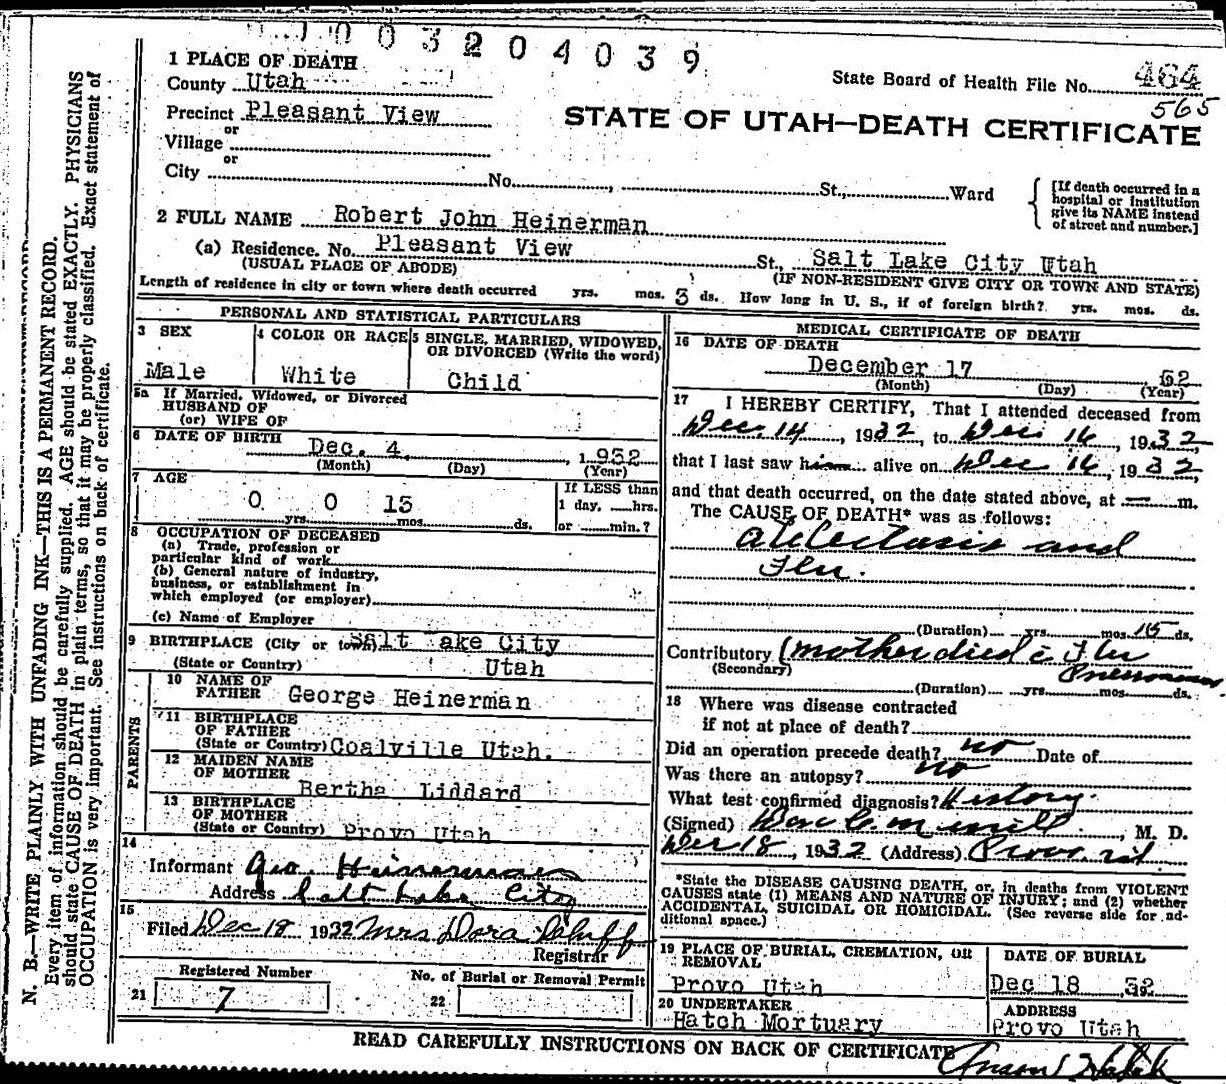 003204039
1 PLACE OF DEATH
County Utah
State Board of Health File No. 464
565
Precinct Pleasant View
or
Village
or
STATE OF UTAH—DEATH CERTIFICATE
City No. , St., Ward
[If death occurred in a hospital or institution give its NAME instead of street and number.]
2 FULL NAME Robert John Heinerman
(a) Residence. No. Pleasant View St., Salt Lake City Utah
(USUAL PLACE OF ABODE) (IF NON-RESIDENT GIVE CITY OR TOWN AND STATE)
Length of residence in city or town where death occurred yrs. mos. 3 ds. How long in U. S., if of foreign birth? yrs. mos. ds.
PERSONAL AND STATISTICAL PARTICULARS
3 SEX
Male
4 COLOR OR RACE
White
5 SINGLE, MARRIED, WIDOWED, OR DIVORCED (Write the word)
Child
5a If Married, Widowed, or Divorced
HUSBAND OF
(or) WIFE OF
6 DATE OF BIRTH Dec. 4 , 1932
(Month) (Day) (Year)
7 AGE
0 0 13
yrs. mos. ds.
If LESS than
1 day, hrs.
or min.?
8 OCCUPATION OF DECEASED
(a) Trade, profession or
particular kind of work
(b) General nature of industry,
business, or establishment in
which employed (or employer)
(c) Name of Employer
9 BIRTHPLACE (City or town) Salt ake City
(State or Country) Utah
PARENTS
10 NAME OF
FATHER George Heinerman
11 BIRTHPLACE
OF FATHER
(State or Country) Coalville Utah.
12 MAIDEN NAME
OF MOTHER
Bertha Liddard
13 BIRTHPLACE
OF MOTHER
(State or Country) Provo Utah
14
Informant Geo. Heinerman
Address Salt Lake City
15
Filed Dec 18 1932 Mrs Dora
Registrar
Registered Number
21 7
No. of Burial or Removal Permit
22
MEDICAL CERTIFICATE OF DEATH
16 DATE OF DEATH
December 17 1932
(Month) (Day) (Year)
17 I HEREBY CERTIFY, That I attended deceased from
Dec. 14, 1932, to Dec 16, 1932,
that I last saw him alive on Dec 16, 1932,
and that death occurred, on the date stated above, at — m.
The CAUSE OF DEATH* was as follows:
Atelectasis and
Flu.
(Duration) yrs. mos. 15 ds.
Contributory (mother died c̄ Flu
(Secondary) Pneumonia
(Duration) yrs. mos. ds.
18 Where was disease contracted
if not at place of death?
Did an operation precede death? no Date of
Was there an autopsy? no
What test confirmed diagnosis? History.
(Signed) , M. D.
Dec 18, 1932 (Address) Provo. Ut
*State the DISEASE CAUSING DEATH, or, in deaths from VIOLENT
CAUSES state (1) MEANS AND NATURE OF INJURY; and (2) whether
ACCIDENTAL, SUICIDAL OR HOMICIDAL. (See reverse side for ad-
ditional space.)
19 PLACE OF BURIAL, CREMATION, OR
REMOVAL
Provo Utah
DATE OF BURIAL
Dec 18 ,32
20 UNDERTAKER
Hatch Mortuary
ADDRESS
Provo Utah
READ CAREFULLY INSTRUCTIONS ON BACK OF CERTIFICATE
N. B.—WRITE PLAINLY WITH UNFADING INK—THIS IS A PERMANENT RECORD.
Every item of information should be carefully supplied. AGE should be stated EXACTLY. PHYSICIANS
should state CAUSE OF DEATH in plain terms, so that it may be properly classified. Exact statement of
OCCUPATION is very important. See instructions on back of certificate.